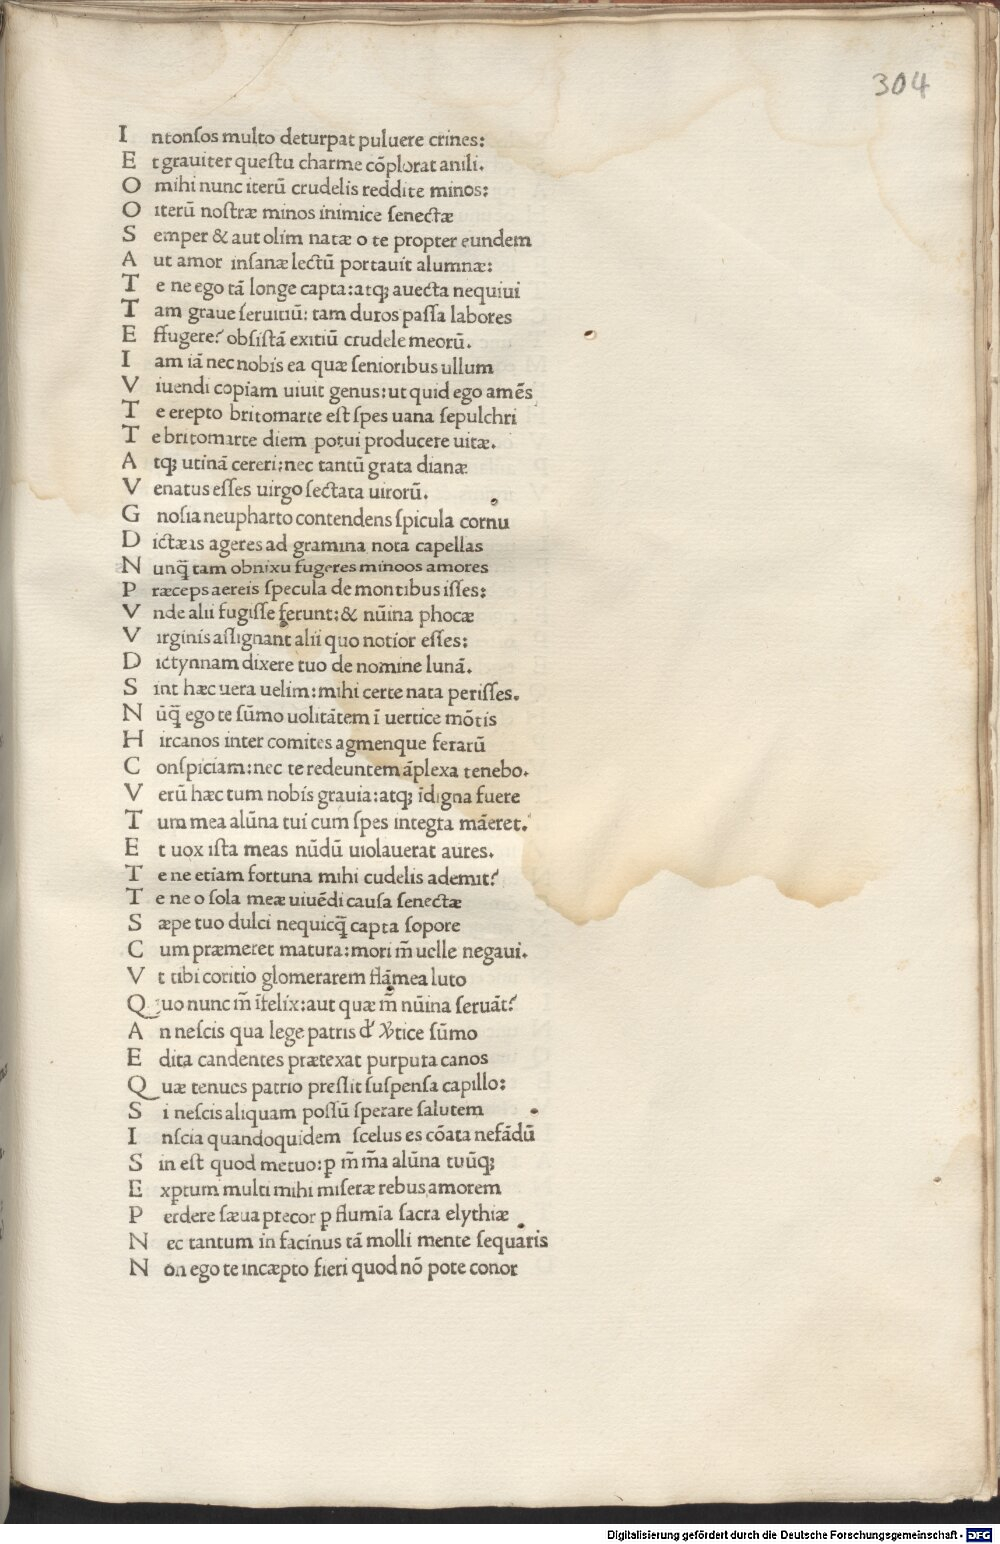 304
I ntonſos multo deturpat puluere crines:
E t grauiter queſtu charme cõplorat anili.
O mihi nunc iterũ crudelis reddite minos:
O iterũ noſtræ minos inimice ſenectæ
S emper & aut olim natæ o te propter eundem
A ut amor inſanæ lectũ portauit alumnæ:
T e ne ego tã longe capta: atq; auecta nequiui
T am graue ſeruitiũ: tam duros paſſa labores
E ffugere? obſiſtã exitiũ crudele meorũ.
I am iã nec nobis ea quæ ſenioribus ullum
V iuendi copiam uiuit genus: ut quid ego amẽs
T e erepto britomarte eſt ſpes uana ſepulchri
T e britomarte diem potui producere uitæ.
A tq; utinã cereri; nec tantũ grata dianæ
V enatus eſſes uirgo ſectata uirorũ.
G noſia neupharto contendens ſpicula cornu
D ictæis ageres ad gramina nota capellas
N unq̃ tam obnixu fugeres minoos amores
P ræceps aereis ſpecula de montibus iſſes:
V nde alii fugiſſe ferunt: & nũina phocæ
V irginis aſſignant alii quo notior eſſes:
D ictynnam dixere tuo de nomine lunã.
S int hæc uera uelim: mihi certe nata periſſes.
N ũq̃ ego te ſũmo uolitãtem ĩ uertice mõtis
H ircanos inter comites agmenque ferarũ
C onſpiciam: nec te redeuntem ãplexa tenebo.
V erũ hæc tum nobis grauia: atq; ĩdigna fuere
T um mea alũna tui cum ſpes integra mãeret.
E t uox iſta meas nũdũ uiolauerat aures.
T e ne etiam fortuna mihi cudelis ademit?
T e ne o ſola meæ uiuẽdi cauſa ſenectæ
S æpe tuo dulci nequicq̃ capta ſopore
C um præmeret matura: mori m̃ uelle negaui.
V t tibi coritio glomerarem flãmea luto
Q uo nunc m̃ ĩfelix: aut quæ m̃ nũina ſeruãt?
A n neſcis qua lege patris ſũmo
E dita candentes prætexat purpura canos
Q uæ tenues patrio preſſit ſuſpenſa capillo:
S i neſcis aliquam poſſũ ſperare ſalutem
I nſcia quandoquidem ſcelus es cõata nefãdũ
S in eſt quod metuo: p m̃ m̃a alũna tuũq;
E xptum multi mihi miſeræ rebus amorem
P erdere ſæua precor p flumĩa ſacra elythiæ
N ec tantum in facinus tã molli mente ſequaris
N on ego te incæpto fieri quod nõ pote conor
Digitalisierung gefördert durch die Deutsche Forschungsgemeinschaft - DFG